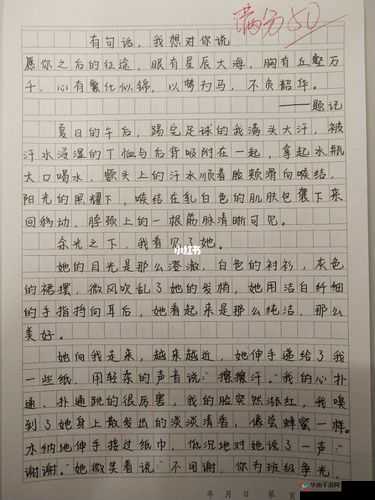 满分50
有句话，我想对你说
愿你之后的征途，眼有星辰大海，胸有丘壑万
千，心有繁花似锦，以梦为马，不负韶华。
——题记
夏日的午后，踢完足球的我满头大汗，被
汗水浸湿的T恤与后背吸附在一起，拿起水瓶
大口喝水，额头上的汗水顺着脸颊滑向喉结，
阳光的照耀下，喉结在乳白色的肌肤包裹下来
回移动，脖颈上的一根筋脉清晰可见。
余光之下，我看见了她。
她的目光是那么澄澈，白色的衬衫，灰色
的裙摆，微风吹乱了她的发梢，她用洁白纤细
的手指挡向耳后，她看起来是那么纯洁，那么
美好。
她向我走来，越来越近，她伸手递给了我
一些纸，用轻柔的声音说“擦擦汗。”我的心扑
通、扑通跳的很厉害，我的脸突然涨红，我嗅
到了她身上散发出的淡淡清香，像蜂蜜一样。
木纳地伸手接过纸巾，低沉地对她说了一声“
谢谢。”她微笑着说“不用谢，你为班级争光，
年 月 日 第
小红书
华南手游网